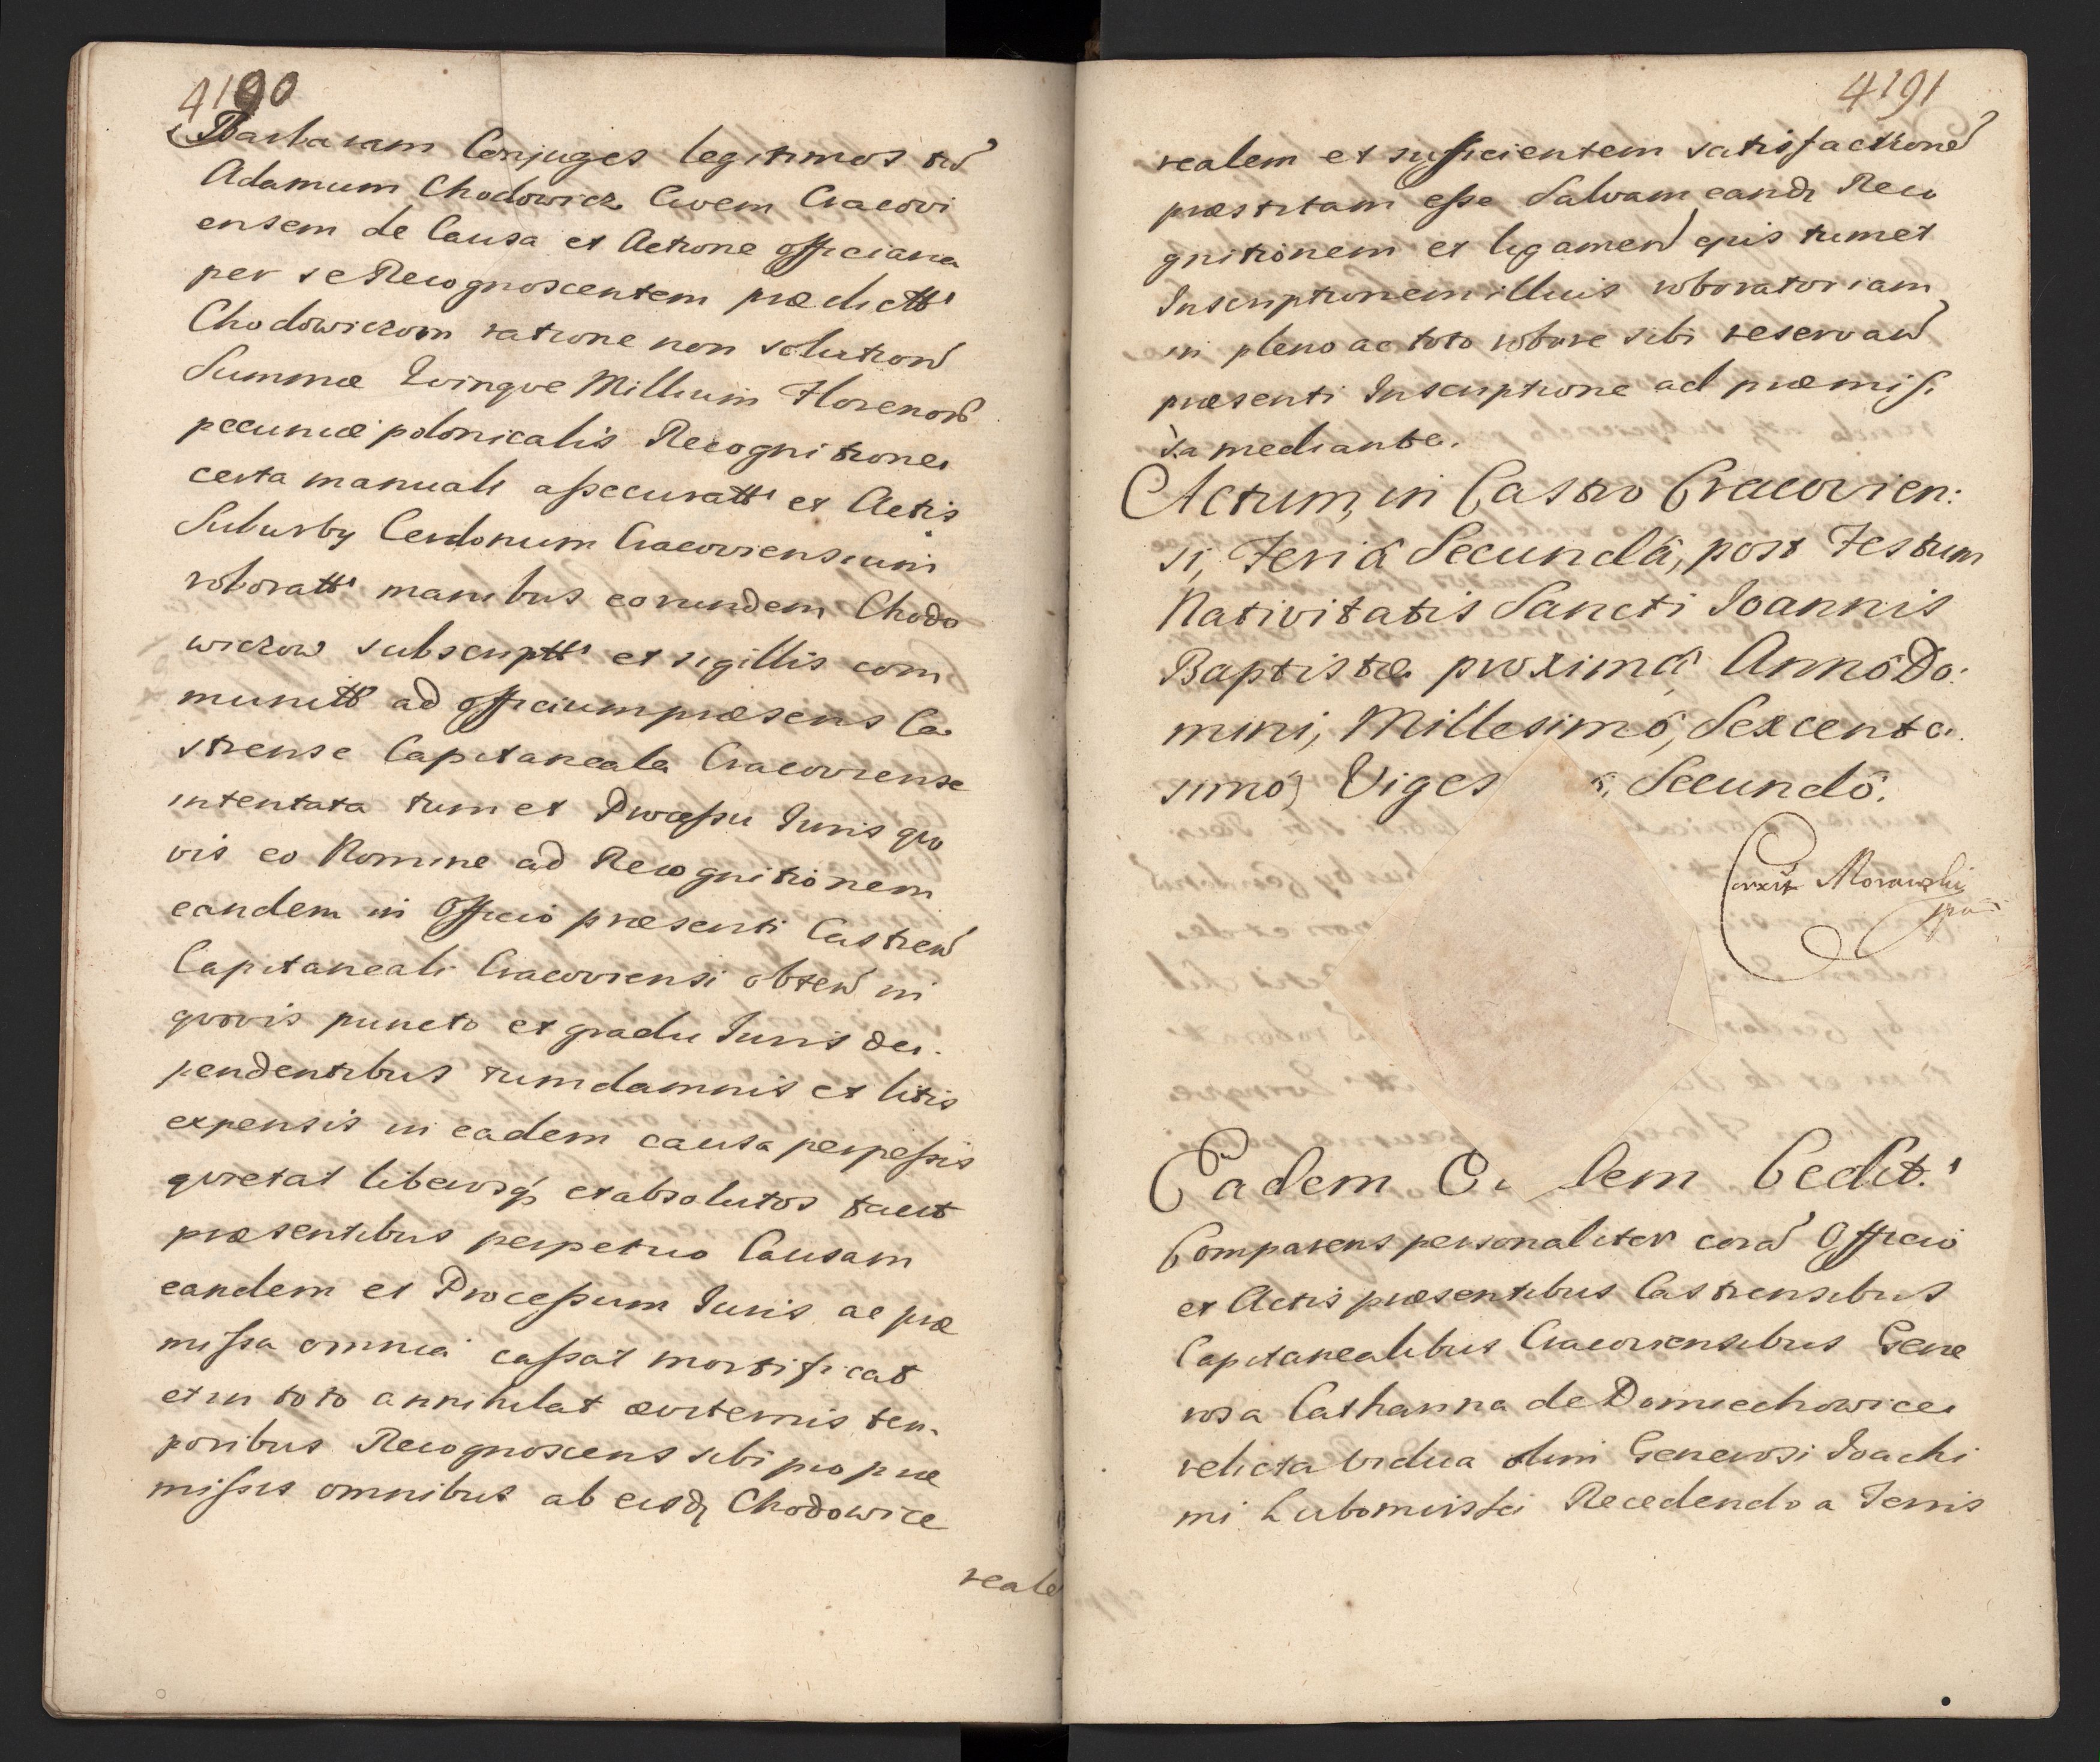 4190
Barbaram Conjuges legitimos tu
Adamum Chodowicz Civem Cracovi
ensem de Causa et Actione officiaria
per se Recognoscentem prædictt
Chodowiczom ratione non solution
Summæ Qvinqve Millium Florenor
pecuniæ polonicalis Recognitione
certa manuali assecuratt et Actis
Suburbij Cerdonum Cracoviensium
roboratt manibus eorundem Chodo
wiczow subscriptt et sigillis com
munitt ad officium præsens Ca
strense Capitaneale Cracoviense
intentata tum et Processu Iuris qvo
vis eo Nomine ad Recognitionem
eandem in Officio præsenti Castren
Capitaneali Cracoviensi obten in
qvovis puncto et gradu Iuris de
pendentibus tum damnis et litis
expensis in eadem causa perpessis
qvietat liberosq et absolutos facit
præsentibus perpetuo Causam
eandem et Processum Iuris ac præ
missa omnia cassat mortificat
et in toto annihilat æviternis tem
poribus Recognoscens sibi pro præ
missis omnibus ab eisd Chodowice
reale
4191
realem et sufficientem satisfaction
præstitam esse Salvam eand Reco
gnitionem et ligamen ejus tum et
Inscriptionem illius roboratoriam
in pleno ac toto robore sibi reservan
præsenti Inscriptione ad præmis
sa mediante.
Actum, in Castro Cracovien:
si, Feriâ Secundâ, post Festum
Nativitatis Sancti Ioannis
Baptistæ proximâ Annô Do:
mini, Millesimô, Sexcente
simô, Viges ô, Secundô.
Corrxit Morawski
mp
Eadem E dem Cedit.
Comparens personaliter cora Officio
et Actis præsentibus Castrensibus
Capitanealibus Cracoviensibus Gene
rosa Catharina de Domiechowice
relicta vidua olim Generosi Ioachi
mi Lubomirski Recedendo a Terris